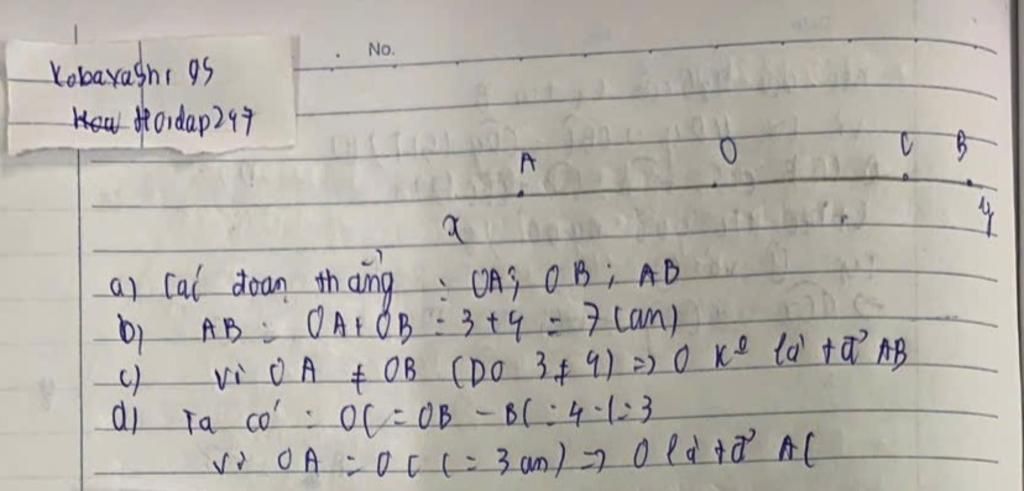 No.
Kobayashi 95
How Hoidap247
A O C B
x y
a) Các đoạn thẳng : OA; OB; AB
b) AB = OA + OB = 3 + 4 = 7 (cm)
c) vì OA ≠ OB (Do 3 ≠ 4) => O ko là tđ AB
d) Ta có : OC = OB - BC = 4 - 1 = 3
vì OA = OC (= 3 cm) => O là tđ AC